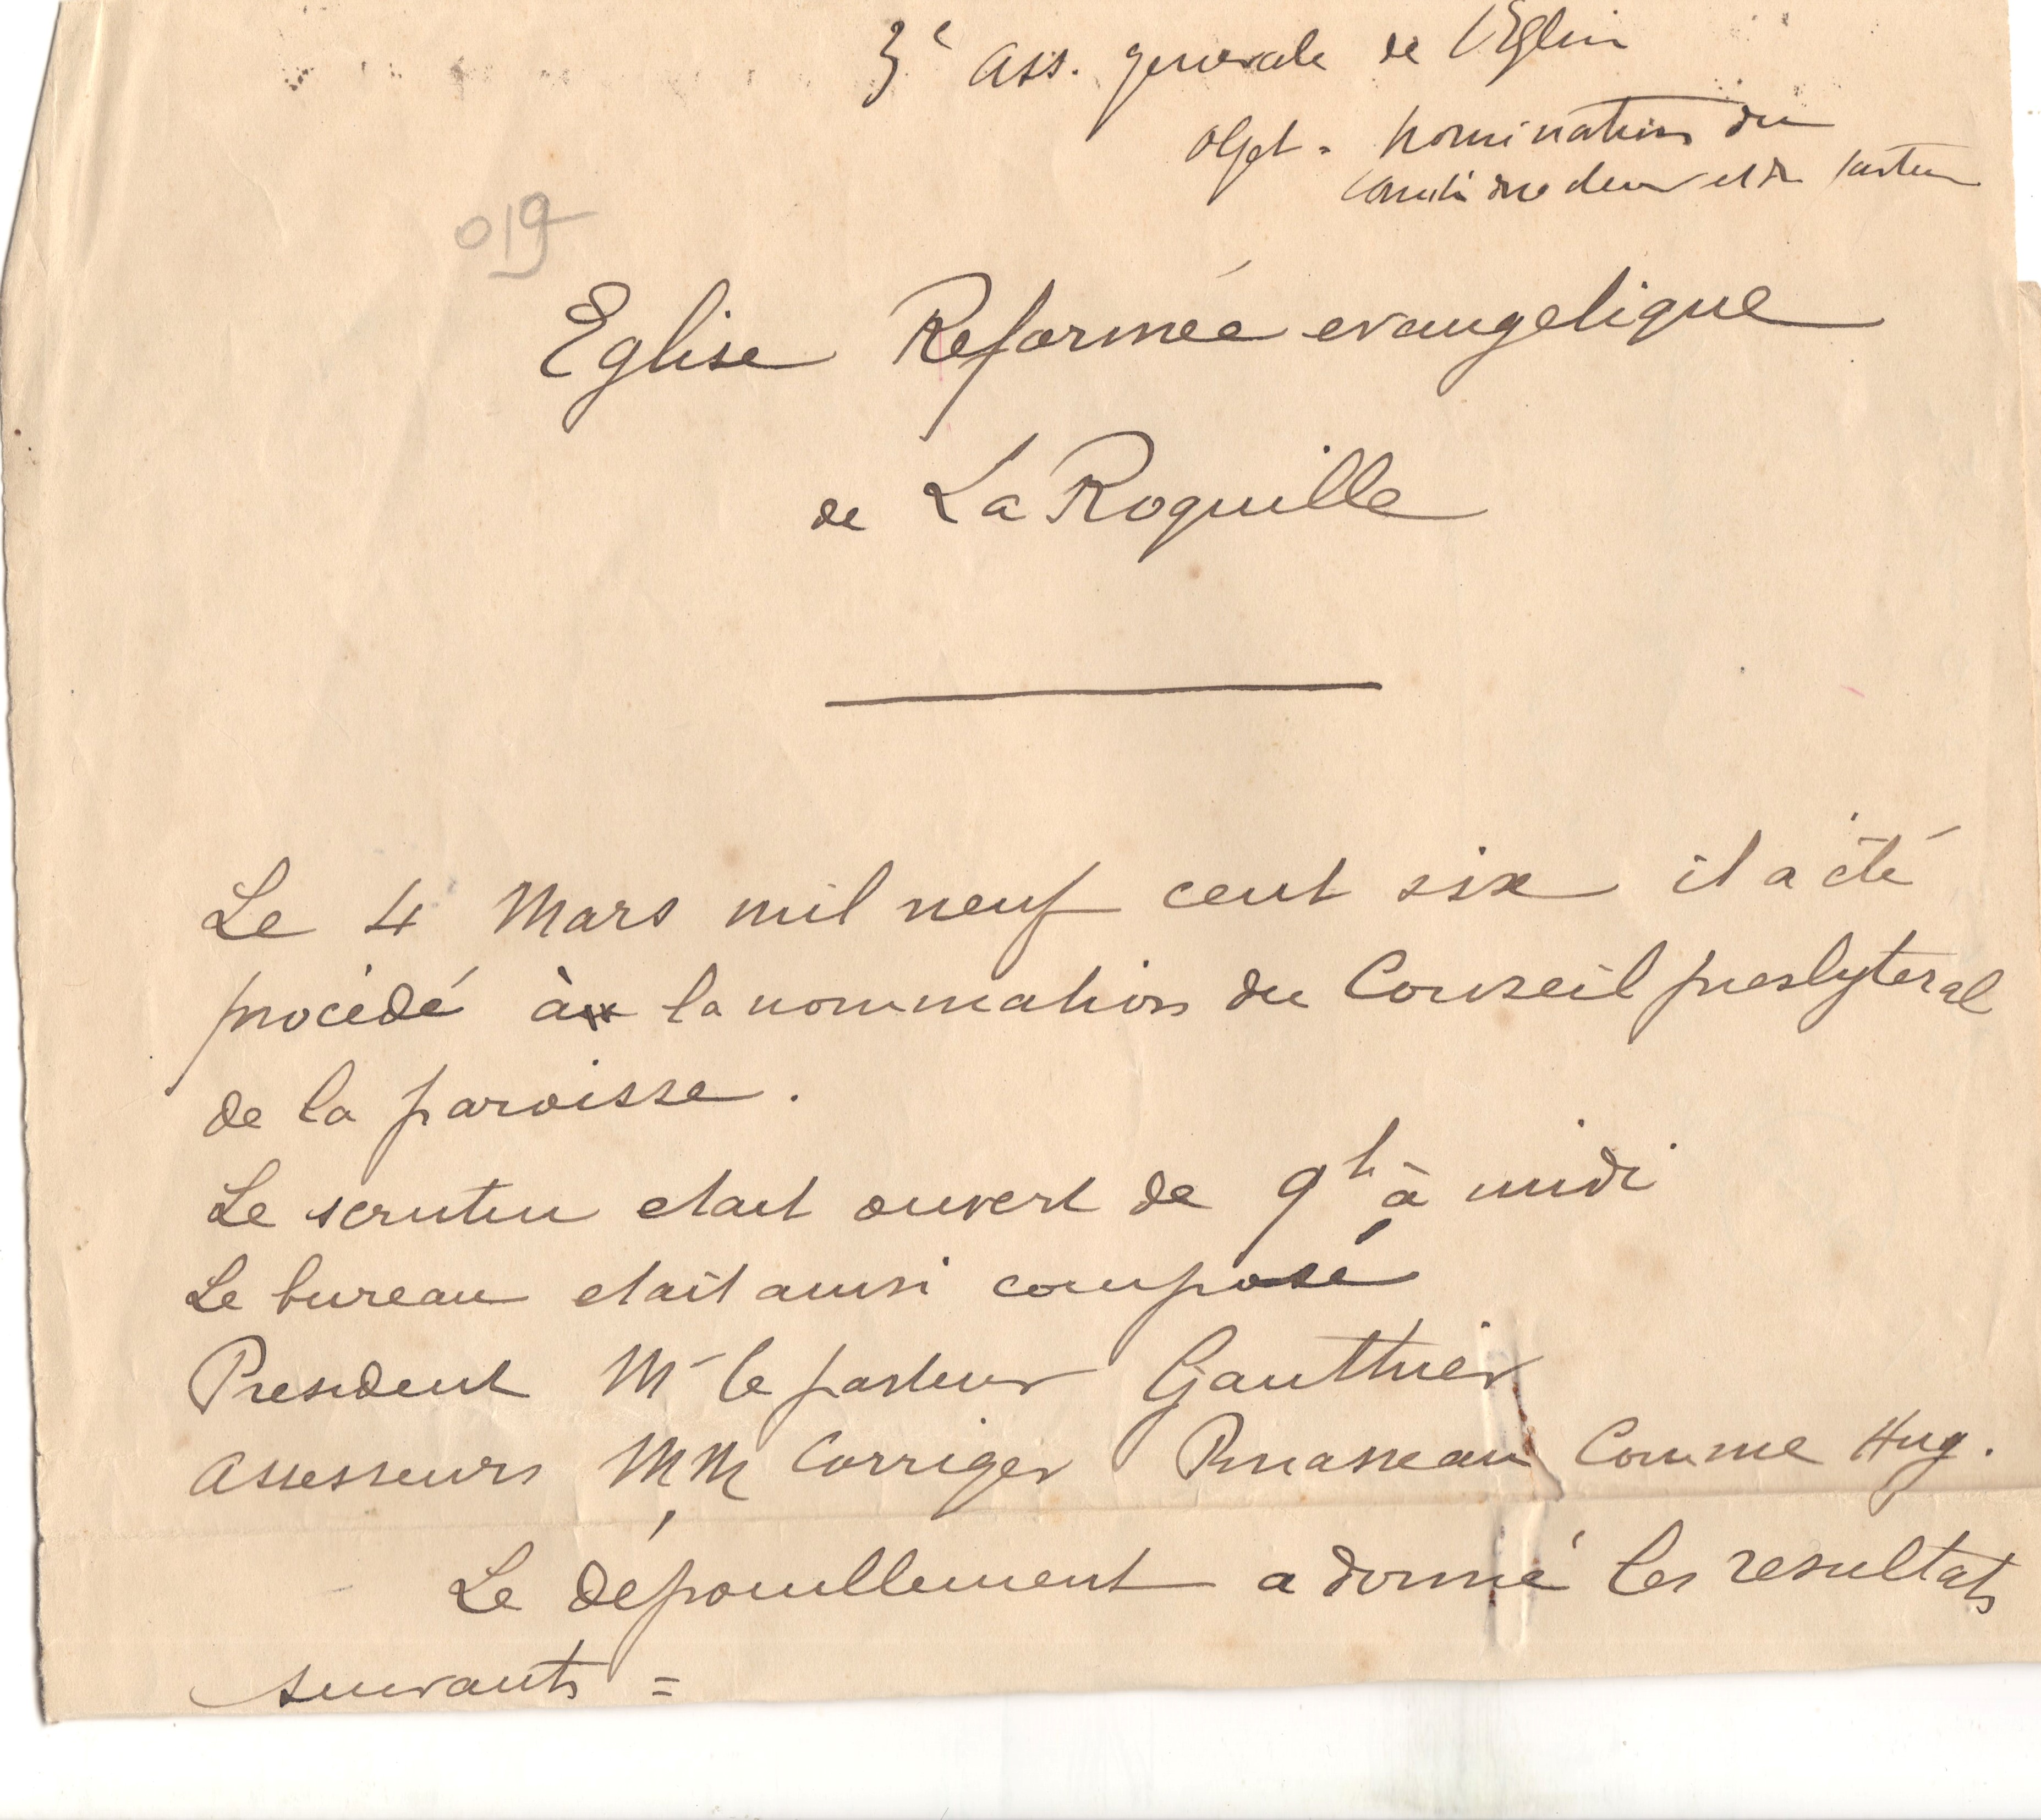 3e Ass. generale de l'Eglise
Objet = Nomination du
Conseil directeur et du pasteur
019
Eglise Reformée evangelique
de La Roquille
Le 4 Mars mil neuf cent six il a été
procédé à la nommation du Conseil presbyteral
de la paroisse.
Le scrutin etait ouvert de 9h à midi
Le bureau etait ainsi composé
President Mr le pasteur Gauthier
Assesseurs MM Corriger Comme Hug.
Le dépouillement a donné les resultats
suivants =